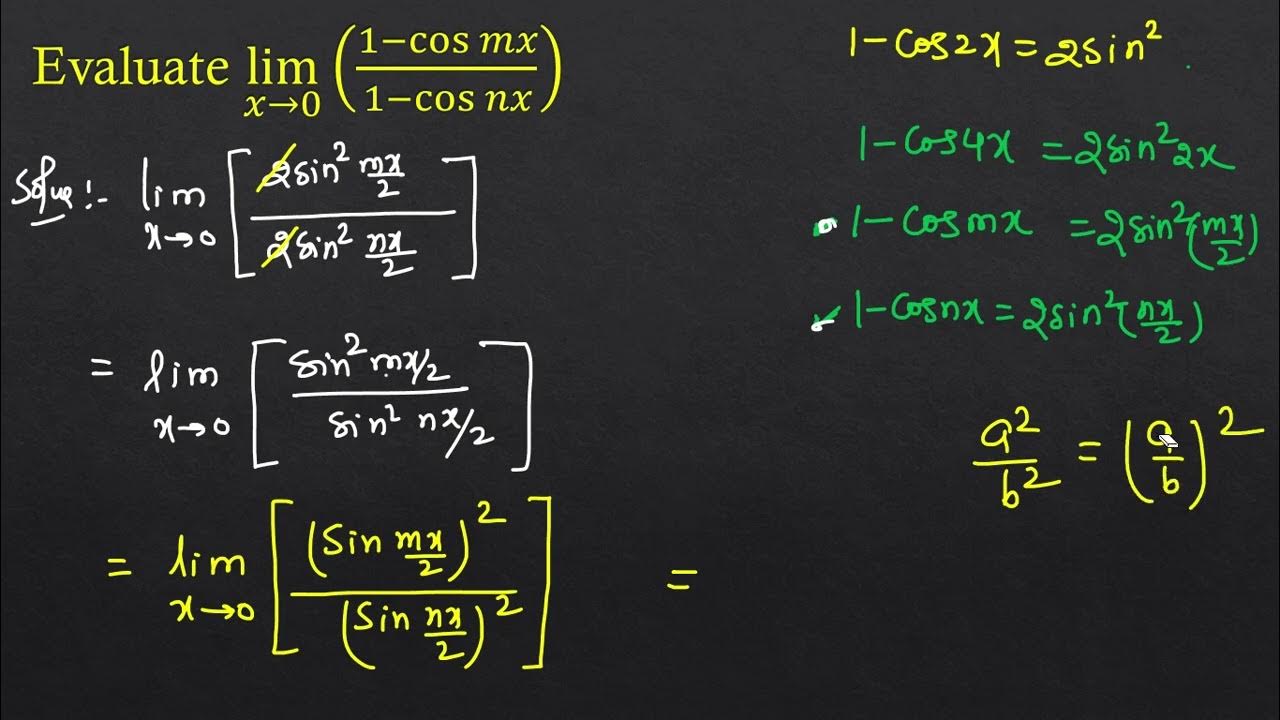 Evaluate lim x→0 (1−cos mx / 1−cos nx)
Solve:- lim x→0 [2sin² mx/2 / 2sin² nx/2]
= lim x→0 [sin² mx/2 / sin² nx/2]
= lim x→0 [(Sin mx/2)² / (Sin nx/2)²] =
1-Cos2x = 2sin²
1-Cos4x = 2sin²2x
1-Cosmx = 2sin²(mx/2)
1-Cosnx = 2sin²(nx/2)
a²/b² = (a/b)²